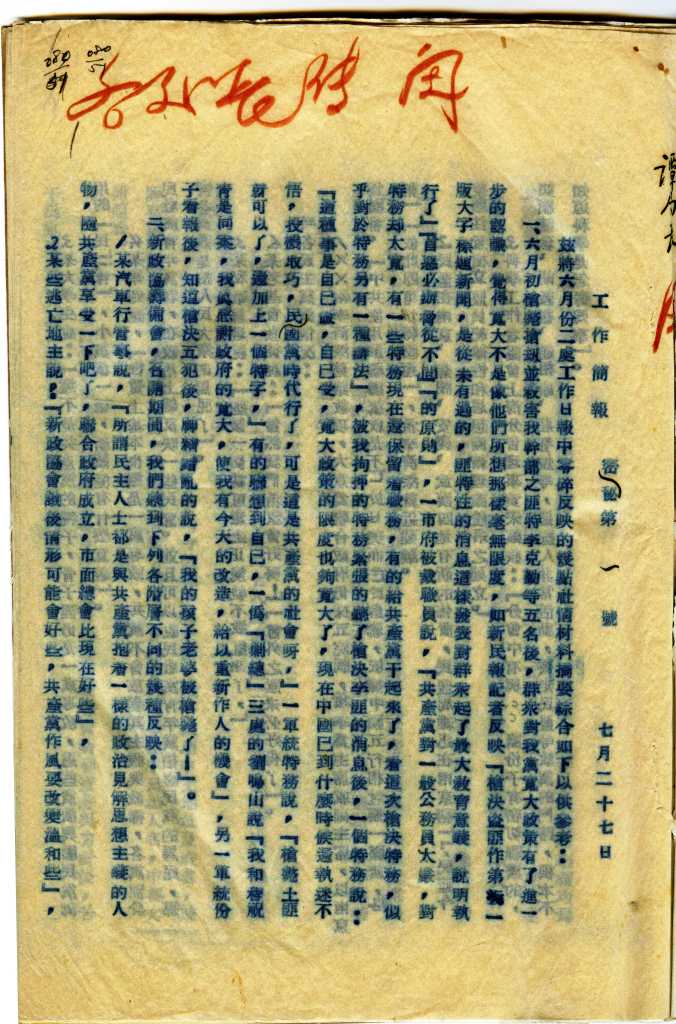 工作簡報 秘第一號 七月二十七日
茲將六月份二處工作日報中零碎反映的幾點社情材料摘要綜合如下以供參考：
一、六月初槍斃搶劫並殺害我幹部之匪特李克勤等五名後，群眾對我黨寬大政策有了進一
步的認識，覺得寬大不是像他們所想那樣毫無限度，如新民報記者反映「槍決盜匪作第一
版大字標題新聞，是從未有過的，匪特性的消息這樣發表對群眾起了最大教育意義，說明執
行了」「首惡必辦脅從不問」的原則」，一市府被裁職員說，「共產黨對一般公務員太嚴，對
特務却太寬，有一些特務現在還保留着職務，有的給共產黨干起來了，看這次槍決特務，似
乎對於特務另有一種講法」，被我拘押的特務緊張的聽了槍決李匪的消息後，一個特務說：
「這種事是自己做，自己受，寬大政策的限度也夠寬大了，現在中國已到什麼時候還執迷不
悟，投機取巧，民國黨時代行了，可是這是共產黨的社會呀，」一軍統特務說，「槍斃土匪
就可以了，還加上一個特字，」有的聯想到自己，一偽「剿總」三處的劉鳴山說「我和蔣
是同案，我真感謝政府的寬大，使我有今天的改造，給以重新作人的機會」，另一軍統份
子看報後，知道槍決五犯後，聊精錯亂的說，「我的孩子老婆被槍斃了！」。
二、新政協籌備會，召開期間，我們聽到下列各階層不同的幾種反映：
1某汽車行營業說，「所謂民主人士都是與共產黨抱着一樣的政治見解思想主義的人
物，隨共產黨享受一下吧了，聯合政府成立，市面總會比現在好些」，
2某些逃亡地主說：「新政協會議後情形可能會好些，共產黨作風要改變溫和些」，
080
59
080
51
閱